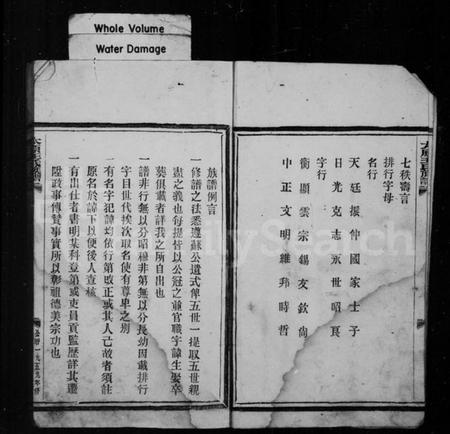 Whole Volume
Water Damage
七秩壽言
排行字母
名行
天廷振仲國家士子
日光克志承世昭良
字行
衡顯雲宗錫友欽尚
中正文明維邦時哲
族譜例言
一修譜之法悉遵蘇公遺式俾五世一提取五世親
盡之義也每提皆以公冠之兼官職字諱生娶卒
葬俱載者詳我之所自出也
一譜非行無以分昭穆非第無以分長幼因載排行
字目世代挨次取名使有尊卑之別
一有名字犯諱均依行第改正或其人已故者須註
原名於諱下以便後人查核
一有出仕者書明某科登第或吏員貢監歷詳其遷
陞政事傳贊事實所以彰祖德美宗功也
公曆一九五九年修
MySearch